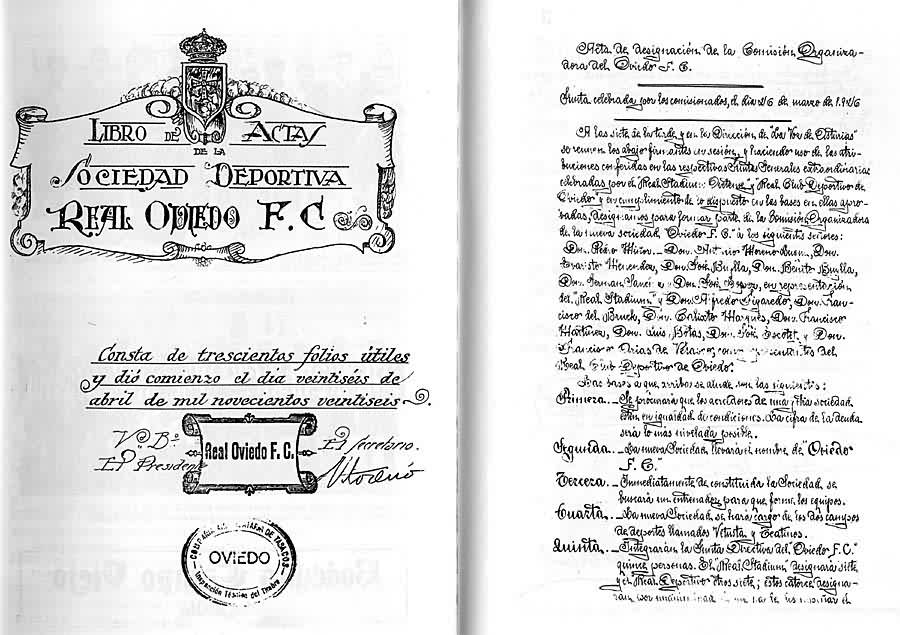 LIBRO DE ACTAS
DE LA
SOCIEDAD DEPORTIVA
REAL OVIEDO F. C
Consta de trescientos folios útiles
y dió comienzo el dia veintiséis de
abril de mil novecientos veintiseis.
Vº Bº
El Presidente
Real Oviedo F. C.
El Secretario
OVIEDO
Inspección Técnica del Timbre
Acta de designación de la Comisión Organiza-
dora del Oviedo F. C.
Junta celebrada por los comisionados, el dia 26 de marzo de 1.926
A las siete de la tarde y en la Dirección de "La Voz de Asturias"
se reunen los abajo firmantes en sesión, y haciendo uso de las atri-
buciones conferidas en las respectivas Juntas Generales extraordinarias
celebradas por el Real Stadium Ovetense y Real Club Deportivo de
Oviedo" y en cumplimiento de lo dispuesto en las bases en ellas apro-
badas, designamos para formar parte de la Comisión Organizadora
de la nueva sociedad "Oviedo F. C." á los siguientes señores:
Don Pedro Miñor Don Antonio Don
Evaristo Don José Buylla, Don Benito Buylla,
Don German Don José en representación
del "Real Stadium" y Don Alfredo Figaredo, Don Fran-
cisco del Brusch, Don Calixto Marqués, Don Francisco
Martínez, Don Luis Botas, Don José y Don
Francisco Arias de Velasco como representantes del
Real Club Deportivo de Oviedo.
Las bases a que arriba se alude son las siguientes:
Primera._ Se procurará que los acreedores de una y otra sociedad
estén en igualdad de condiciones. La cifra de la deuda
será lo más nivelada posible.
Segunda._ La nueva Sociedad llevará el nombre de "Oviedo
F. C."
Tercera._ Inmediatamente de constituida la Sociedad, se
buscará un entrenador para que forme los equipos.
Cuarta._ La nueva Sociedad se hará cargo de los dos campos
de deportes llamados Vetusta y Teatinos.
Quinta._ Integrarán la Junta Directiva del "Oviedo F. C."
quince personas. El "Real Stadium" designará siete
y el Real Deportivo otros siete; éstos catorce designa-
rán por unanimidad el